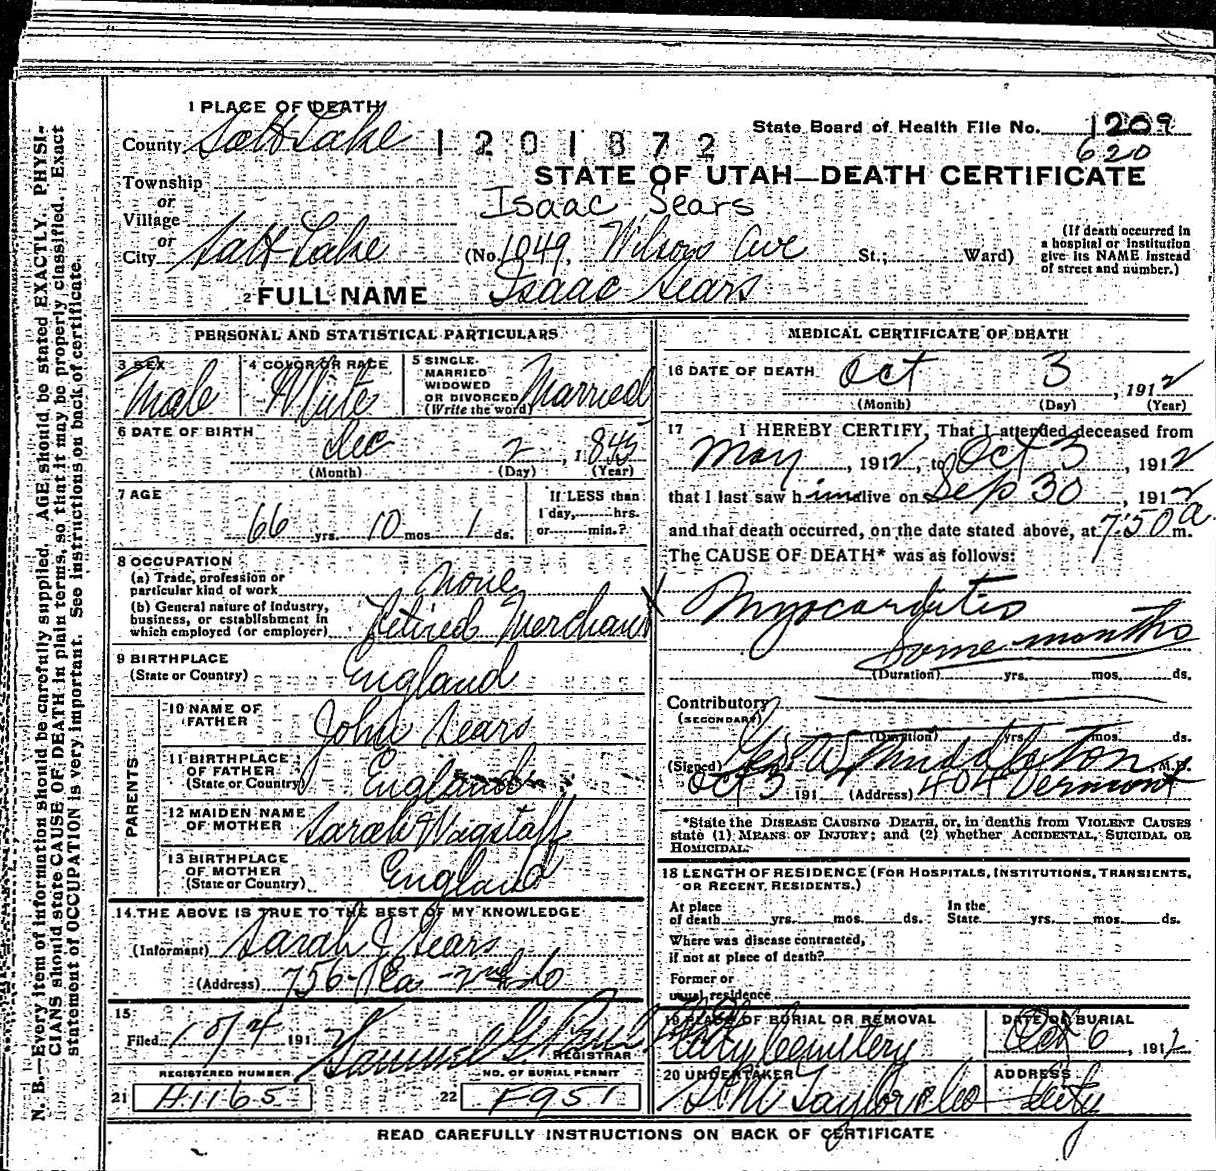 1 PLACE OF DEATH
County Salt Lake 1201872
State Board of Health File No. 1209
620
STATE OF UTAH—DEATH CERTIFICATE
Township
or
Village
Isaac Sears
or
City Salt Lake (No. 1049 Wilson Ave St.; Ward)
(If death occurred in a hospital or institution give its NAME instead of street and number.)
2 FULL NAME Isaac Sears
PERSONAL AND STATISTICAL PARTICULARS
3 SEX Male
4 COLOR OR RACE White
5 SINGLE, MARRIED WIDOWED OR DIVORCED (Write the word) Married
6 DATE OF BIRTH Dec 2, 1845
(Month) (Day) (Year)
7 AGE 66 yrs. 10 mos. 1 ds.
If LESS than 1 day, hrs. or min.?
8 OCCUPATION
(a) Trade, profession or particular kind of work none
(b) General nature of industry, business, or establishment in which employed (or employer) Retired Merchant
9 BIRTHPLACE (State or Country) England
PARENTS
10 NAME OF FATHER John Sears
11 BIRTHPLACE OF FATHER (State or Country) England
12 MAIDEN NAME OF MOTHER Sarah Wagstaff
13 BIRTHPLACE OF MOTHER (State or Country) England
14 THE ABOVE IS TRUE TO THE BEST OF MY KNOWLEDGE
(Informant) Sarah J Sears
(Address) 756
15
Filed 10/4 191
REGISTRAR
REGISTERED NUMBER
21 H1165
NO. OF BURIAL PERMIT
22 F951
MEDICAL CERTIFICATE OF DEATH
16 DATE OF DEATH Oct 3, 1912
(Month) (Day) (Year)
17 I HEREBY CERTIFY, That I attended deceased from
May, 1912, to Oct 3, 1912
that I last saw him alive on Sep 30, 1912
and that death occurred, on the date stated above, at 7:50 a m.
The CAUSE OF DEATH* was as follows:
Myocarditis
Some months
(Duration) yrs. mos. ds.
Contributory
(SECONDARY)
(Duration) yrs. mos. ds.
(Signed) Geo W Middleton M.D.
Oct 3 191 (Address) 404 Vermont
*State the DISEASE CAUSING DEATH, or, in deaths from VIOLENT CAUSES
state (1) MEANS OF INJURY; and (2) whether ACCIDENTAL, SUICIDAL OR
HOMICIDAL.
18 LENGTH OF RESIDENCE (FOR HOSPITALS, INSTITUTIONS, TRANSIENTS, OR RECENT RESIDENTS.)
At place of death yrs. mos. ds. In the State yrs. mos. ds.
Where was disease contracted, if not at place of death?
Former or usual residence
19 PLACE OF BURIAL OR REMOVAL City Cemetery
DATE OF BURIAL Oct 6, 1912
20 UNDERTAKER Taylor & Co
ADDRESS City
READ CAREFULLY INSTRUCTIONS ON BACK OF CERTIFICATE
N. B.—Every item of information should be carefully supplied. AGE should be stated EXACTLY. PHYSI-
CIANS should state CAUSE OF DEATH in plain terms, so that it may be properly classified. Exact
statement of OCCUPATION is very important. See instructions on back of certificate.